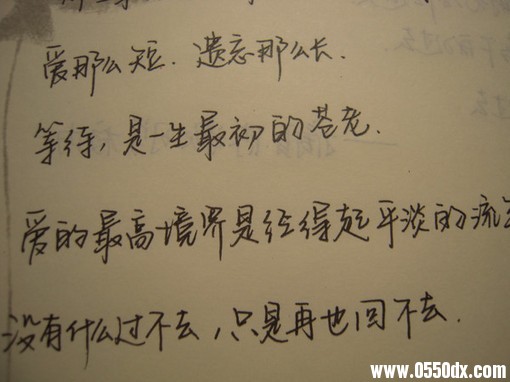 爱那么短.遗忘那么长.
等待,是一生最初的苍老.
爱的最高境界是经得起平淡的流
没有什么过不去,只是再也回不去.
www.0550dx.com